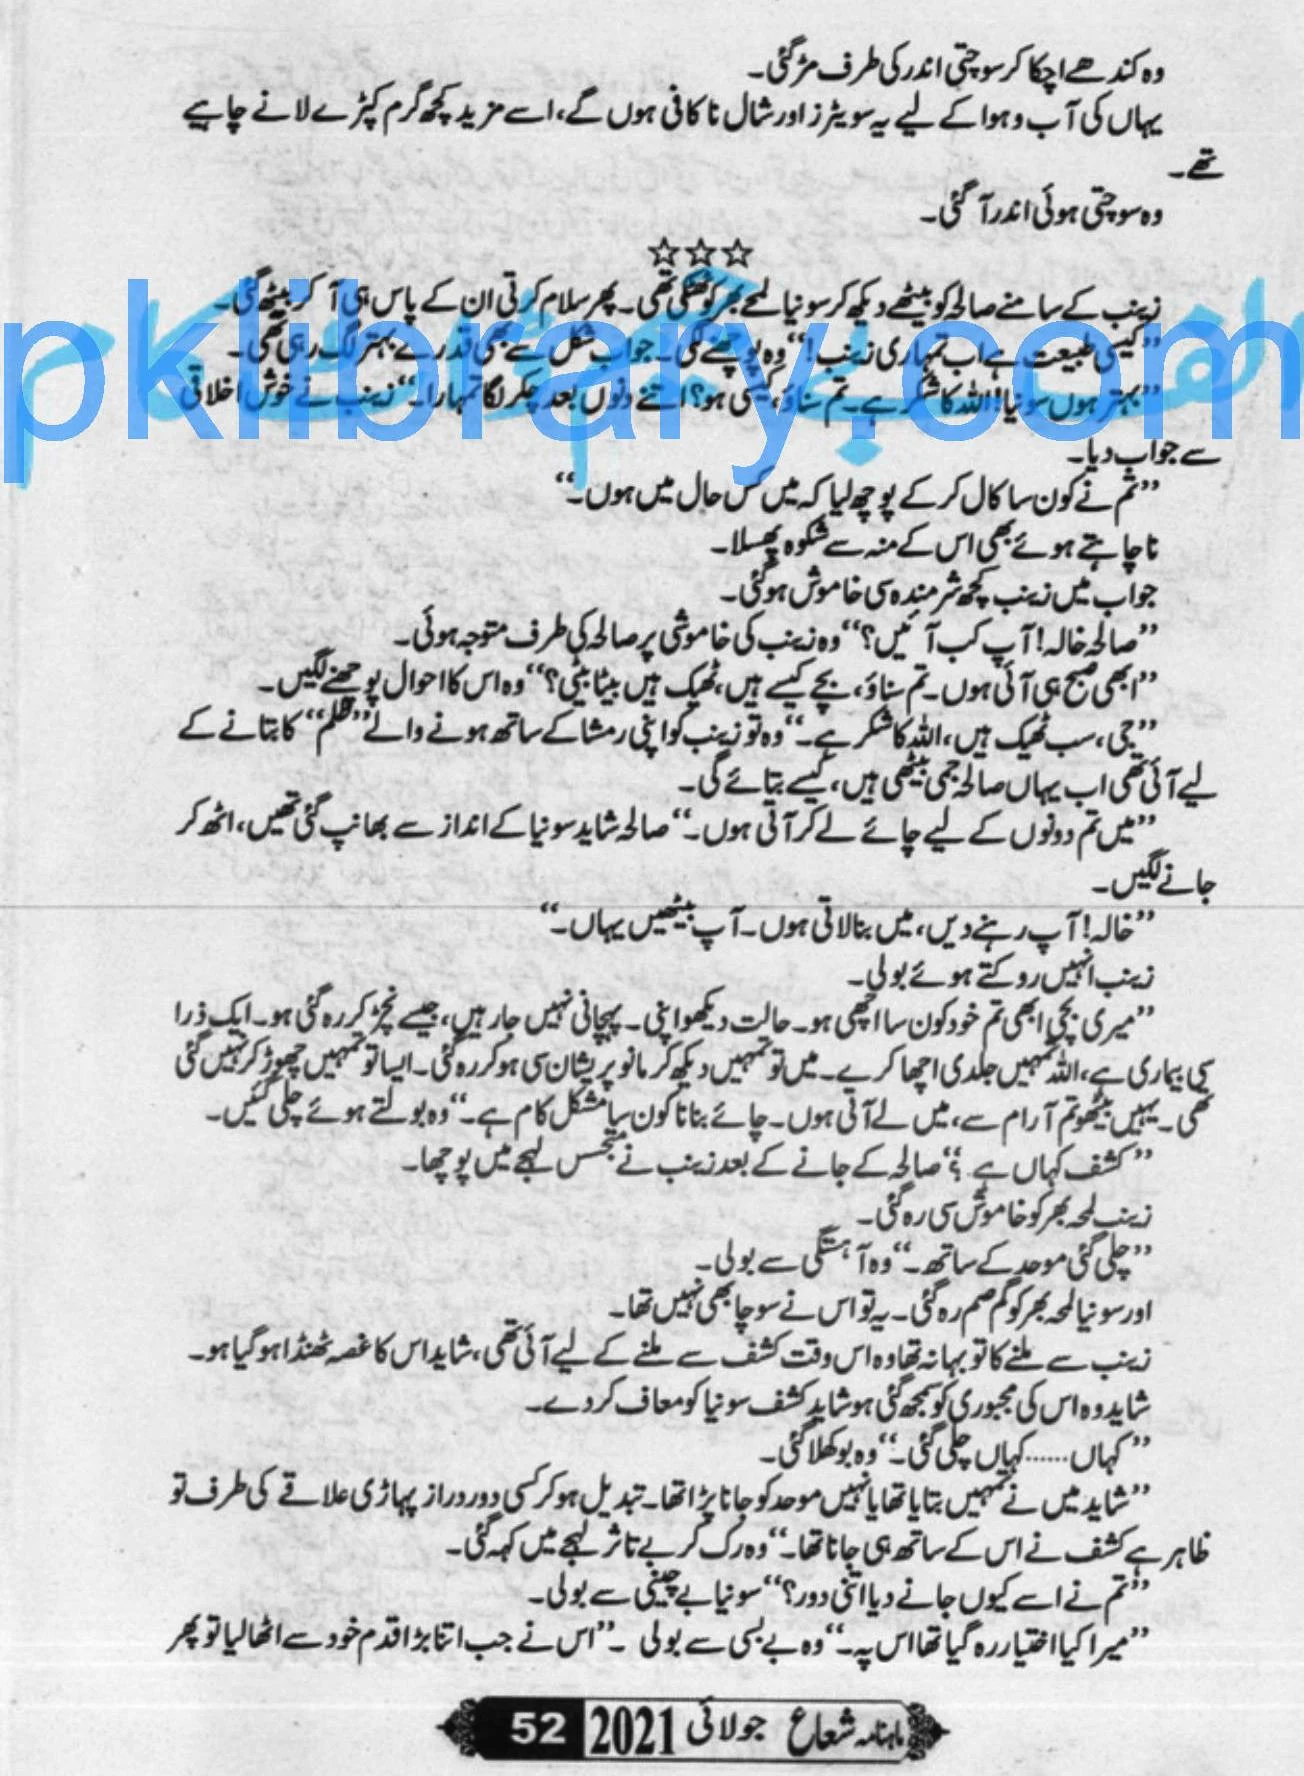 وہ کندھے اچکا کر سوچتی اندر کی طرف مڑ گئی۔
یہاں کی آب و ہوا کے لیے یہ سویٹرز اور شال ناکافی ہوں گے، اسے مزید کچھ گرم کپڑے لانے چاہیے
تھے۔
وہ سوچتی ہوئی اندر آ گئی۔
☆☆☆
زینب کے سامنے صالحہ کو بیٹھے دیکھ کر سونیا لمحے بھر کو ٹھٹکی تھی۔ پھر سلام کرتی ان کے پاس ہی آ کر بیٹھ گئی۔
’’کیسی طبیعت ہے اب تمہاری زینب!‘‘ وہ پوچھنے لگی۔ جواب شکل سے بھی قدرے بہتر لگ رہی تھی۔
’’بہتر ہوں سونیا! اللہ کا شکر ہے۔ تم سناؤ، کیسی ہو؟ اتنے دنوں بعد چکر لگا تمہارا۔‘‘ زینب نے خوش اخلاقی
سے جواب دیا۔
’’تم نے کون سا کال کر کے پوچھ لیا کہ میں کس حال میں ہوں۔‘‘
نا چاہتے ہوئے بھی اس کے منہ سے شکوہ پھسلا۔
جواب میں زینب کچھ شرمندہ سی خاموش ہو گئی۔
’’صالحہ خالہ! آپ کب آئیں؟‘‘ وہ زینب کی خاموشی پر صالحہ کی طرف متوجہ ہوئی۔
’’ابھی صبح ہی آئی ہوں۔ تم سناؤ، بچے کیسے ہیں، ٹھیک ہیں بیٹا بیٹی؟‘‘ وہ اس کا احوال پوچھنے لگیں۔
’’جی، سب ٹھیک ہیں، اللہ کا شکر ہے۔‘‘ وہ تو زینب کو اپنی رمشا کے ساتھ ہونے والے ’’ظلم‘‘ کا بتانے کے
لیے آئی تھی اب یہاں صالحہ جمی بیٹھی ہیں، کیسے بتائے گی۔
’’میں تم دونوں کے لیے چائے لے کر آتی ہوں۔‘‘ صالحہ شاید سونیا کے انداز سے بھانپ گئی تھیں، اٹھ کر
جانے لگیں۔
’’خالہ! آپ رہنے دیں، میں بنا لاتی ہوں۔ آپ بیٹھیں یہاں۔‘‘
زینب انہیں روکتے ہوئے بولی۔
’’میری بچی ابھی تم خود کون سا اچھی ہو۔ حالت دیکھو اپنی۔ پہچانی نہیں جا رہیں، جیسے نچڑ کر رہ گئی ہو۔ ایک ذرا
سی بیماری ہے، اللہ تمہیں جلدی اچھا کرے۔ میں تو تمہیں دیکھ کر مانو پریشان سی ہو کر رہ گئی۔ ایسا تو تمہیں چھوڑ کر نہیں گئی
تھی۔ یہیں بیٹھو تم آرام سے، میں لے آتی ہوں۔ چائے بنانا کون سا مشکل کام ہے۔‘‘ وہ بولتے ہوئے چلی گئیں۔
’’کشف کہاں ہے؟‘‘ صالحہ کے جانے کے بعد زینب نے متجسس لہجے میں پوچھا۔
زینب لمحہ بھر کو خاموش سی رہ گئی۔
’’چلی گئی موحد کے ساتھ۔‘‘ وہ آہستگی سے بولی۔
اور سونیا لمحہ بھر کو گم صم رہ گئی۔ یہ تو اس نے سوچا بھی نہیں تھا۔
زینب سے ملنے کا تو بہانہ تھا وہ اس وقت کشف سے ملنے کے لیے آئی تھی، شاید اس کا غصہ ٹھنڈا ہو گیا ہو۔
شاید وہ اس کی مجبوری کو سمجھ گئی ہو شاید کشف سونیا کو معاف کر دے۔
’’کہاں......کہاں چلی گئی۔‘‘ وہ بوکھلا گئی۔
’’شاید میں نے تمہیں بتایا تھا یا نہیں موحد کو جانا پڑا تھا۔ تبدیل ہو کر کسی دور دراز پہاڑی علاقے کی طرف تو
ظاہر ہے کشف نے اس کے ساتھ ہی جانا تھا۔‘‘ وہ رک کر بے تاثر لہجے میں کہہ گئی۔
’’تم نے اسے کیوں جانے دیا اتنی دور؟‘‘ سونیا بے چینی سے بولی۔
’’میرا کیا اختیار رہ گیا تھا اس پہ۔‘‘ وہ بے بسی سے بولی۔ ’’اس نے جب اتنا بڑا قدم خود سے اٹھا لیا تو پھر
ماہنامہ شعاع جولائی 2021 52
pklibrary.com